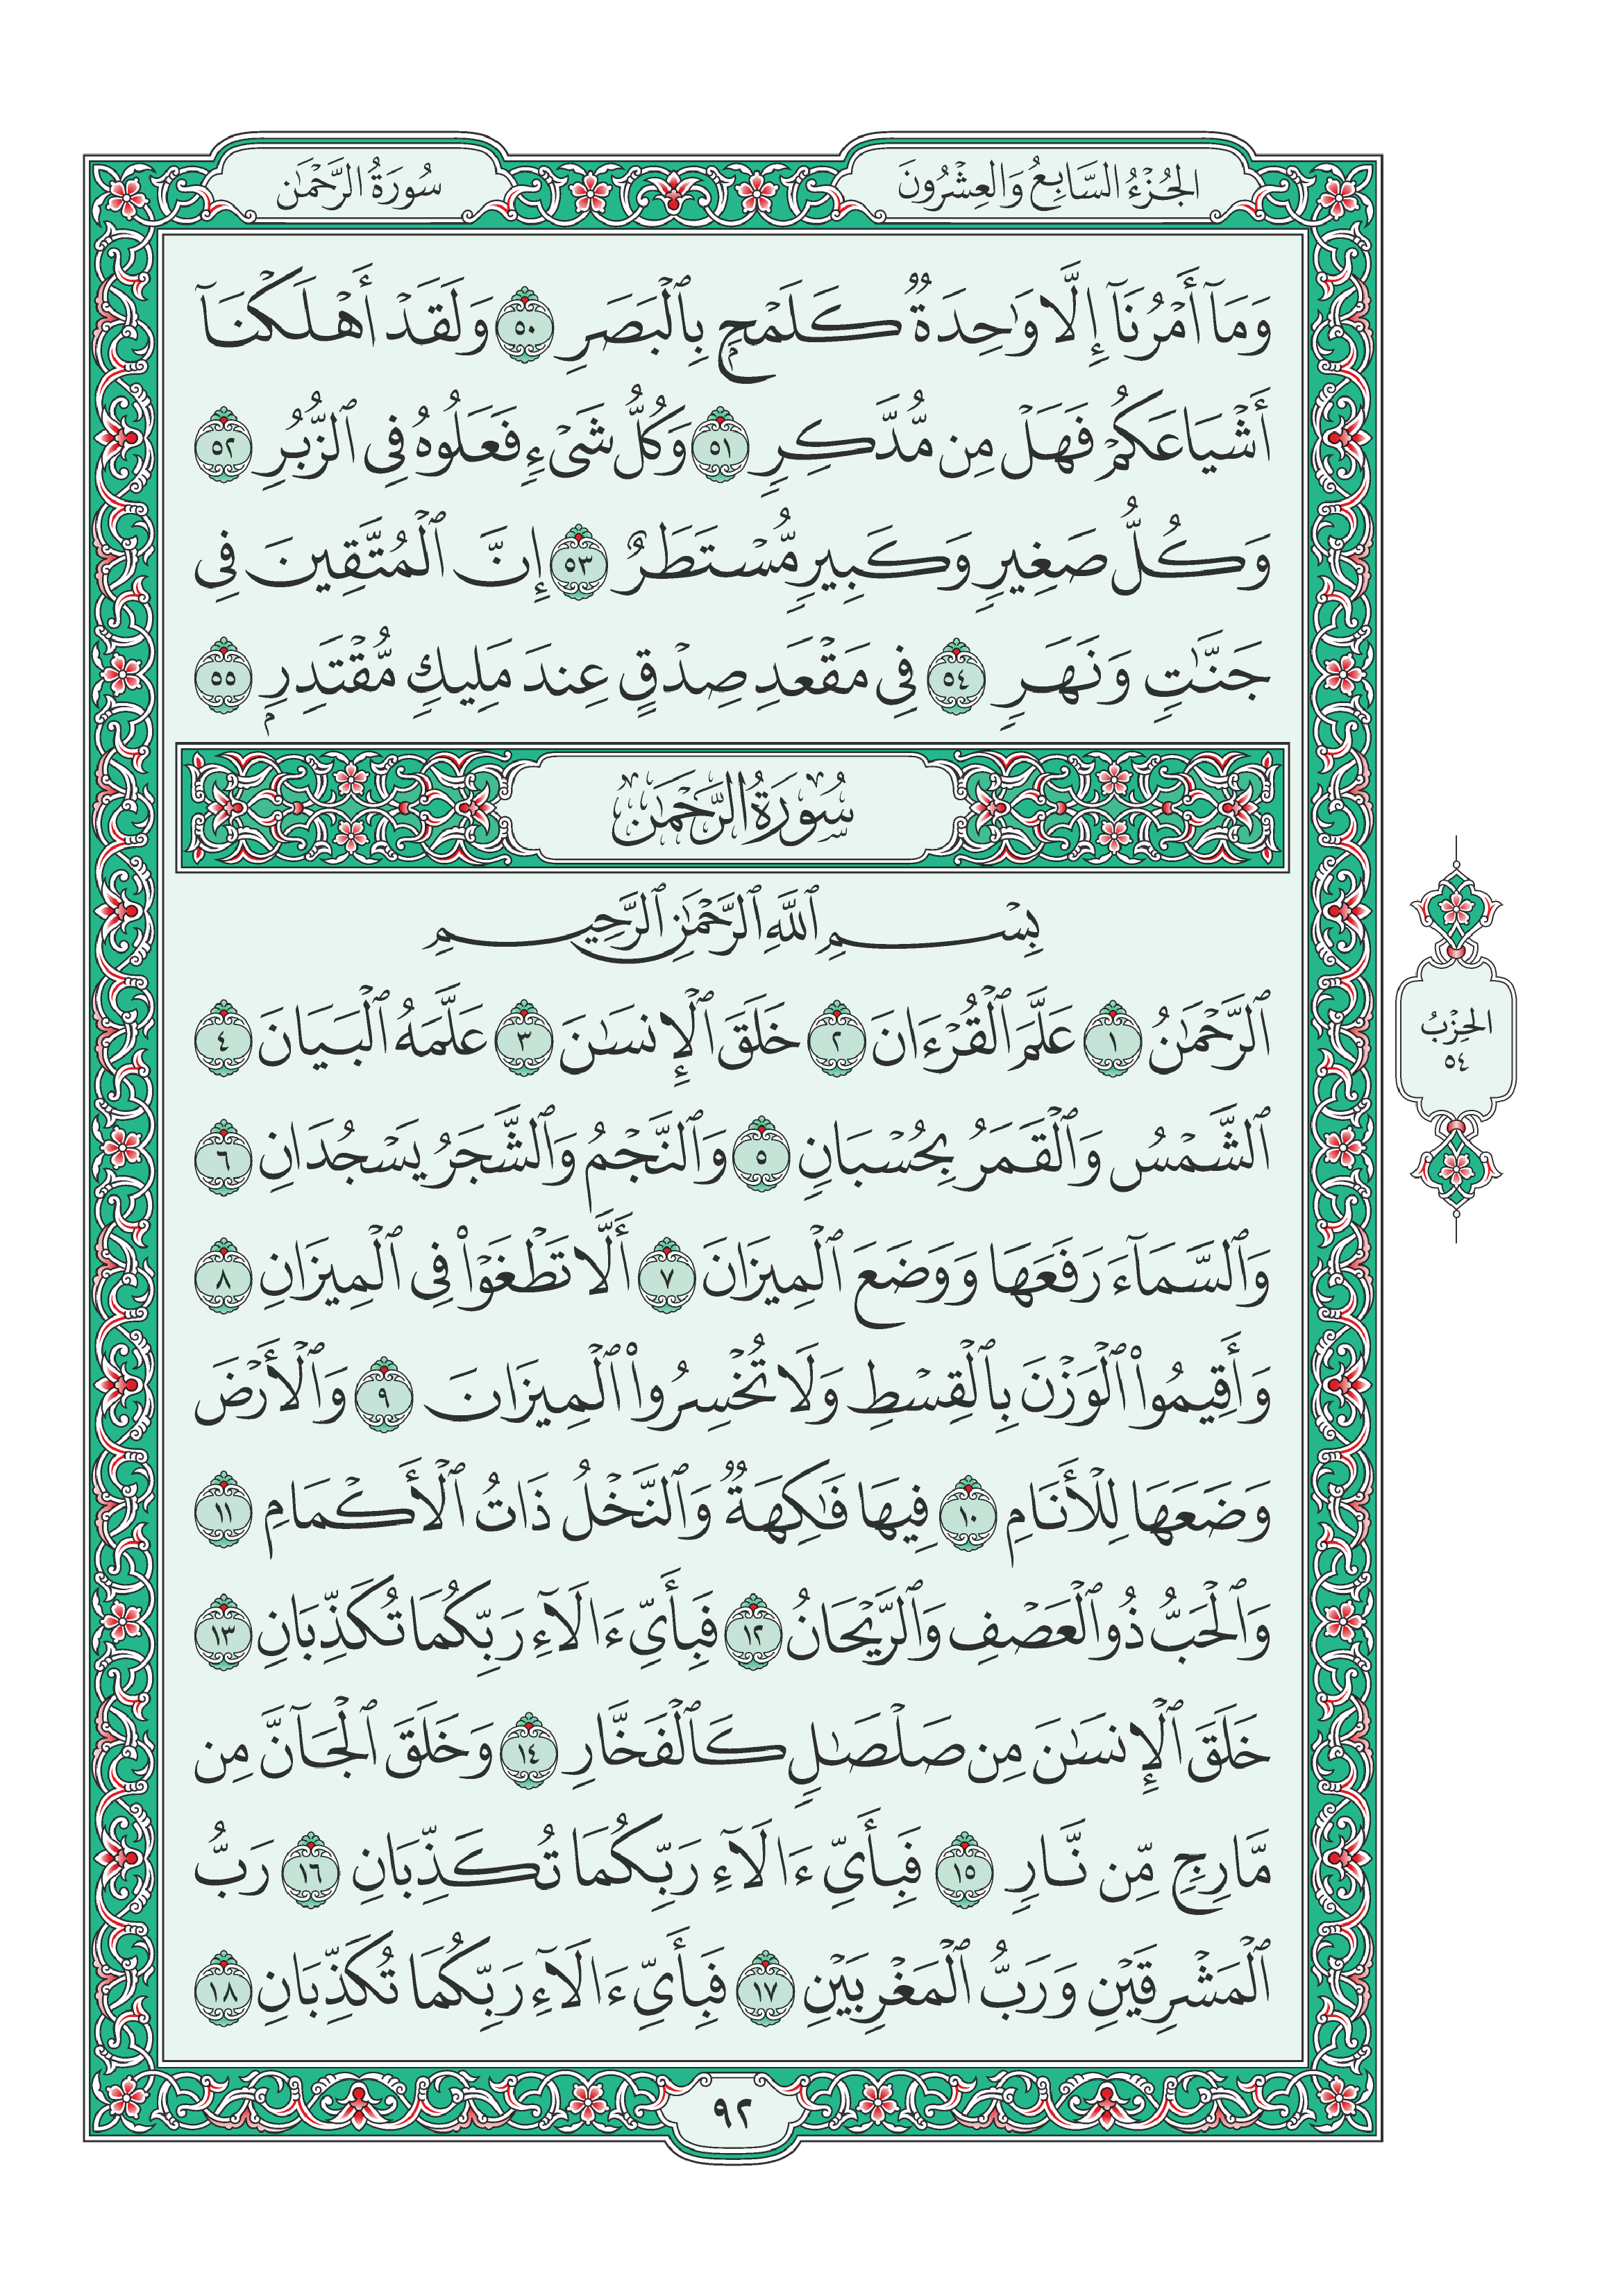 الجُزْءُ السَّابِعُ وَالعِشْرُونَ
سُورَةُ الرَّحْمَٰن
وَمَآ أَمْرُنَآ إِلَّا وَٰحِدَةٌ كَلَمْحٍۭ بِٱلْبَصَرِ ٥٠ وَلَقَدْ أَهْلَكْنَآ
أَشْيَاعَكُمْ فَهَلْ مِن مُّدَّكِرٍ ٥١ وَكُلُّ شَىْءٍ فَعَلُوهُ فِى ٱلزُّبُرِ ٥٢
وَكُلُّ صَغِيرٍ وَكَبِيرٍ مُّسْتَطَرٌ ٥٣ إِنَّ ٱلْمُتَّقِينَ فِى
جَنَّٰتٍ وَنَهَرٍ ٥٤ فِى مَقْعَدِ صِدْقٍ عِندَ مَلِيكٍ مُّقْتَدِرٍۭ ٥٥
سُورَةُ الرَّحْمَٰن
بِسْمِ ٱللَّهِ ٱلرَّحْمَٰنِ ٱلرَّحِيمِ
ٱلرَّحْمَٰنُ ١ عَلَّمَ ٱلْقُرْءَانَ ٢ خَلَقَ ٱلْإِنسَٰنَ ٣ عَلَّمَهُ ٱلْبَيَانَ ٤
ٱلشَّمْسُ وَٱلْقَمَرُ بِحُسْبَانٍ ٥ وَٱلنَّجْمُ وَٱلشَّجَرُ يَسْجُدَانِ ٦
وَٱلسَّمَآءَ رَفَعَهَا وَوَضَعَ ٱلْمِيزَانَ ٧ أَلَّا تَطْغَوْا۟ فِى ٱلْمِيزَانِ ٨
وَأَقِيمُوا۟ ٱلْوَزْنَ بِٱلْقِسْطِ وَلَا تُخْسِرُوا۟ ٱلْمِيزَانَ ٩ وَٱلْأَرْضَ
وَضَعَهَا لِلْأَنَامِ ١٠ فِيهَا فَٰكِهَةٌ وَٱلنَّخْلُ ذَاتُ ٱلْأَكْمَامِ ١١
وَٱلْحَبُّ ذُو ٱلْعَصْفِ وَٱلرَّيْحَانُ ١٢ فَبِأَىِّ ءَالَآءِ رَبِّكُمَا تُكَذِّبَانِ ١٣
خَلَقَ ٱلْإِنسَٰنَ مِن صَلْصَٰلٍ كَٱلْفَخَّارِ ١٤ وَخَلَقَ ٱلْجَآنَّ مِن
مَّارِجٍ مِّن نَّارٍ ١٥ فَبِأَىِّ ءَالَآءِ رَبِّكُمَا تُكَذِّبَانِ ١٦ رَبُّ
ٱلْمَشْرِقَيْنِ وَرَبُّ ٱلْمَغْرِبَيْنِ ١٧ فَبِأَىِّ ءَالَآءِ رَبِّكُمَا تُكَذِّبَانِ ١٨
الحِزْبُ
٥٤
٩٢